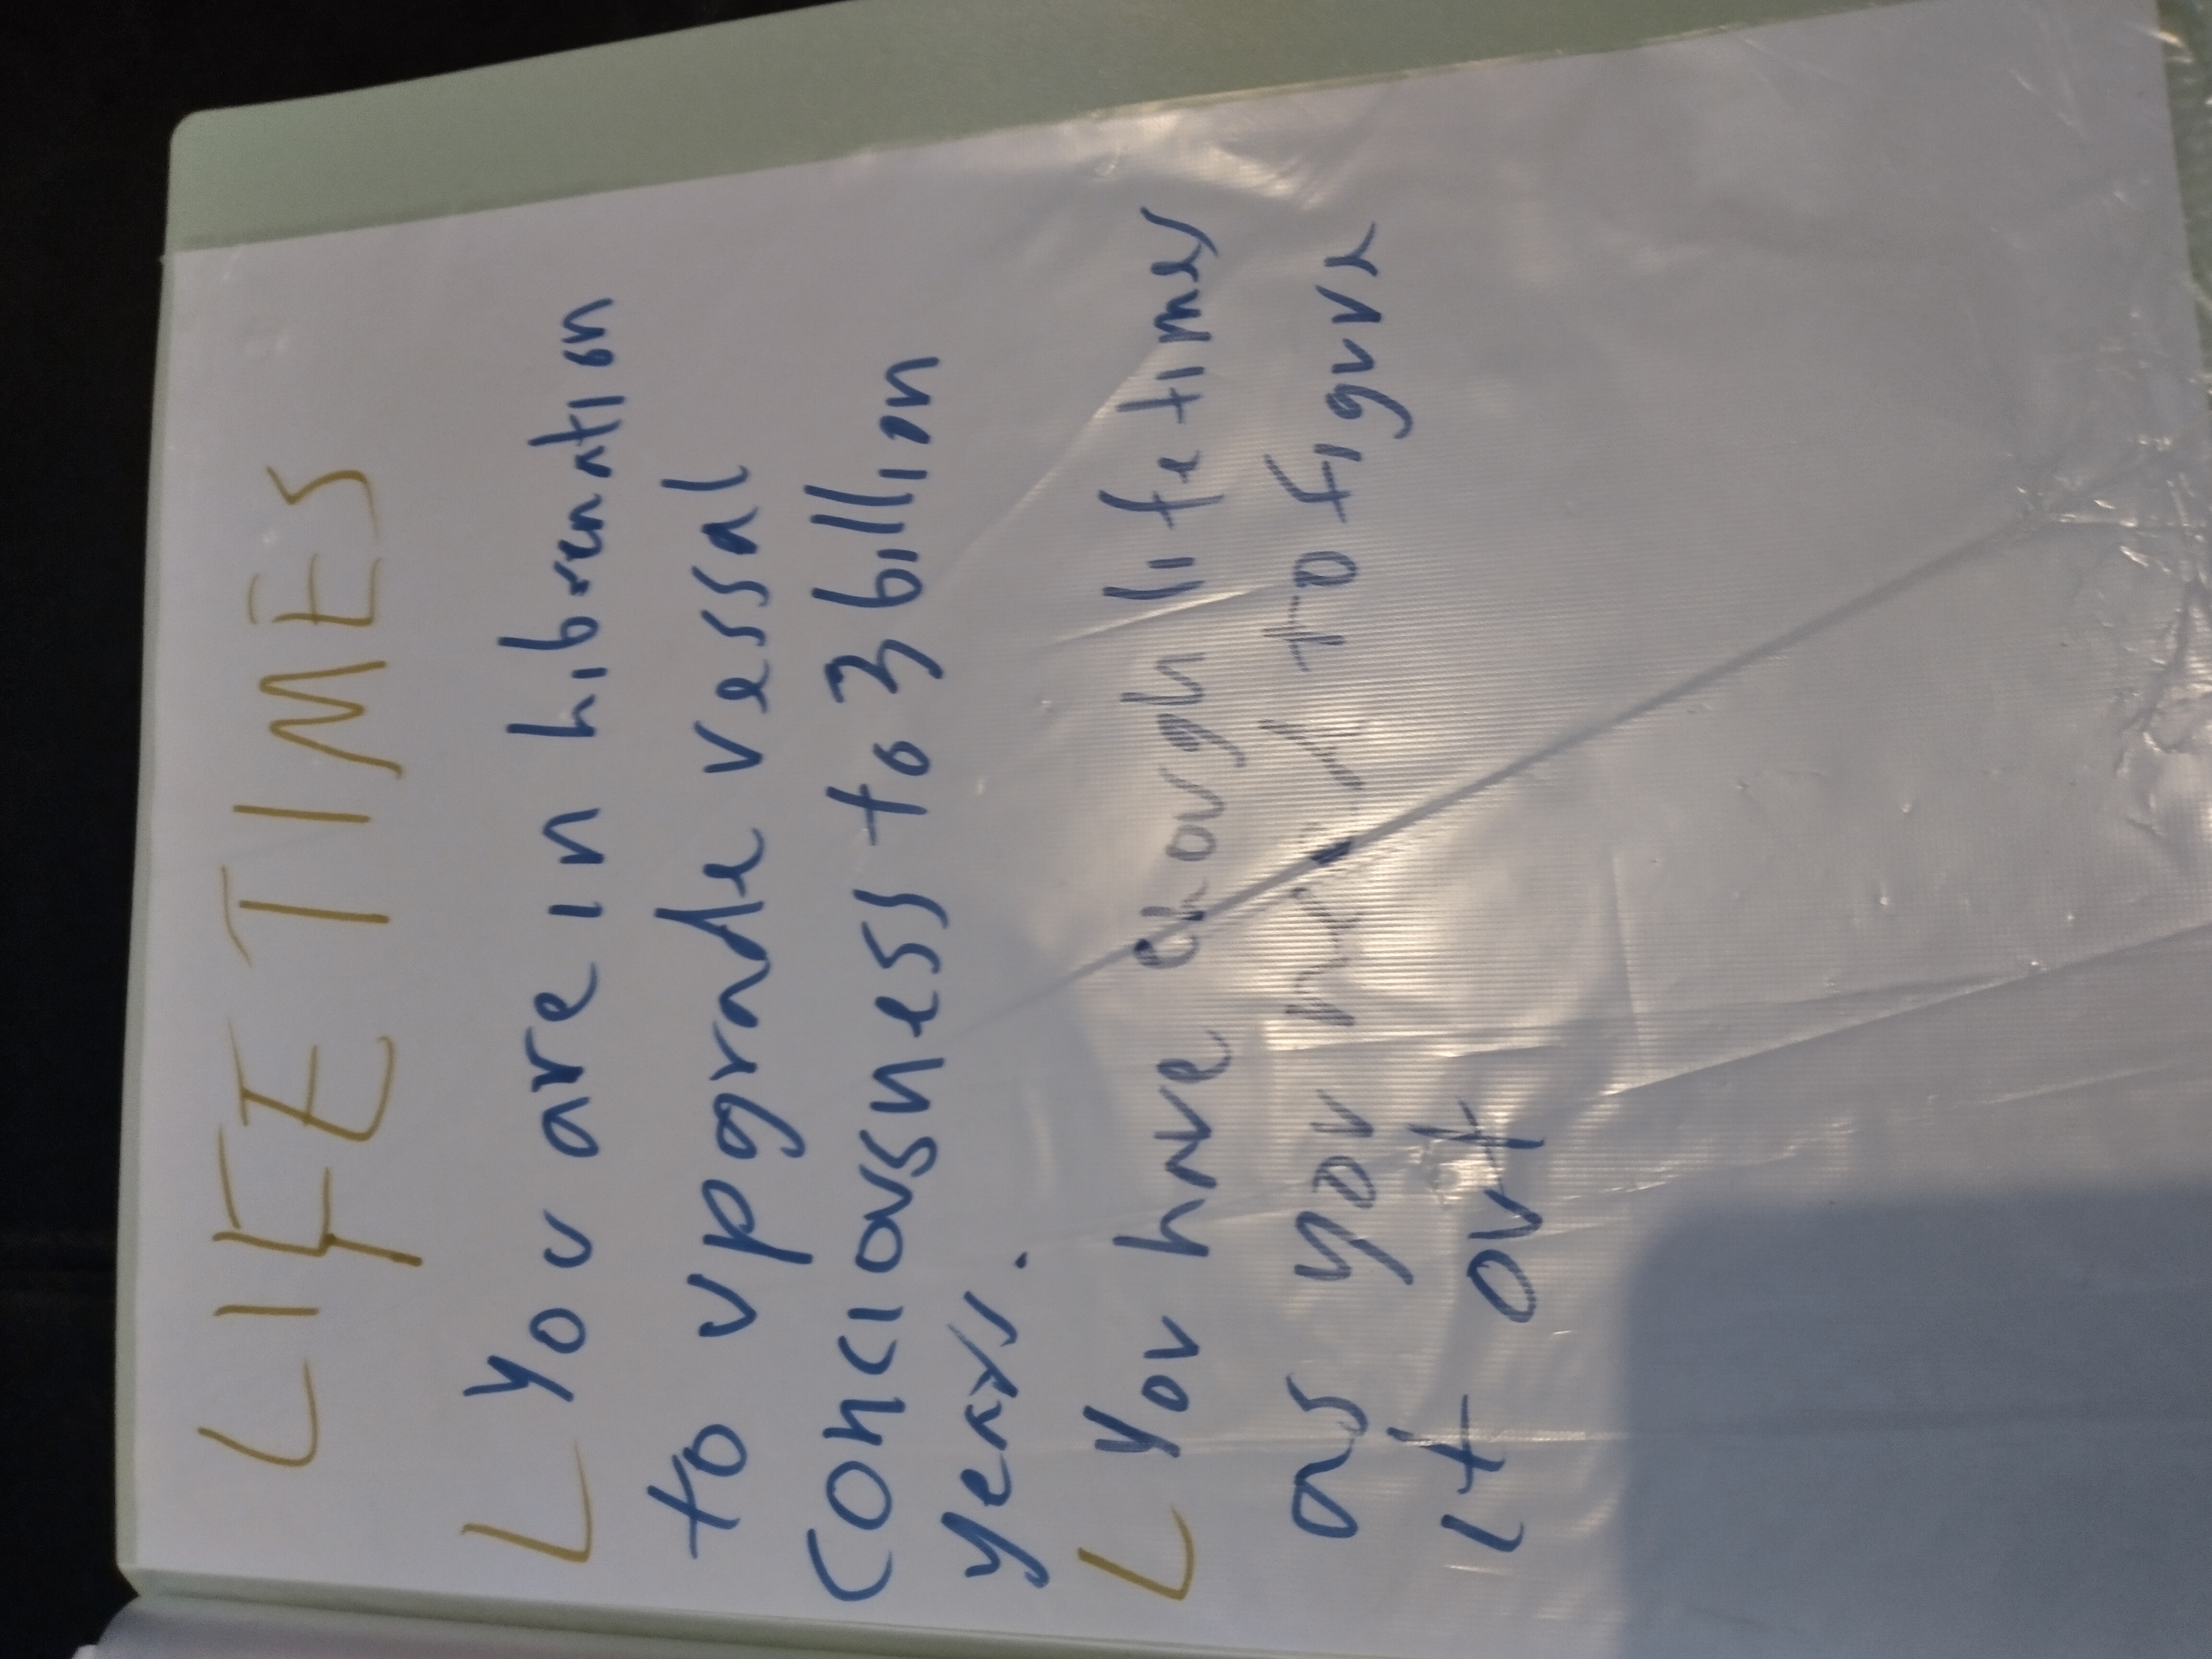 LIFETIMES
L You are in hibernation
to upgrade vessal
conciousness to 3 billion
years.
L You have enough lifetimes
as you need to figure
it out